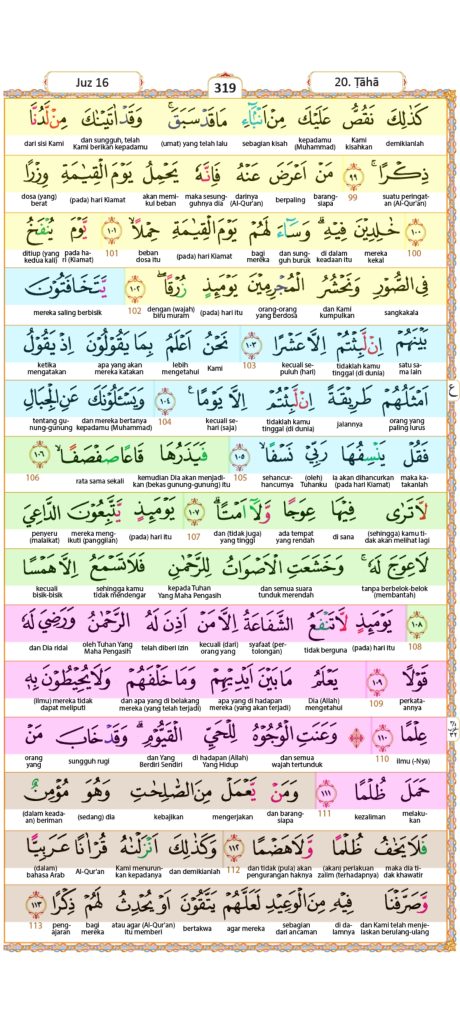 Juz 16
319
20. Ṭāhā
كَذٰلِكَ نَقُصُّ عَلَيْكَ مِنْ اَنْۢبَاۤءِ مَا قَدْ سَبَقَۚ وَقَدْ اٰتَيْنٰكَ مِنْ لَّدُنَّا
demikianlah Kami kisahkan kepadamu (Muhammad) sebagian kisah (umat) yang telah lalu dan sungguh, telah Kami berikan kepadamu dari sisi Kami
ذِكْرًاۚ ٩٩ مَنْ اَعْرَضَ عَنْهُ فَاِنَّهٗ يَحْمِلُ يَوْمَ الْقِيٰمَةِ وِزْرًا
suatu peringatan (Al-Qur'an) 99 barangsiapa berpaling darinya (Al-Qur'an) maka sesungguhnya dia akan memikul beban (pada) hari Kiamat dosa (yang) berat
١٠٠ خٰلِدِيْنَ فِيْهِۗ وَسَاۤءَ لَهُمْ يَوْمَ الْقِيٰمَةِ حِمْلًاۙ ١٠١ يَّوْمَ يُنْفَخُ
100 mereka kekal di dalam keadaan itu dan sungguh buruk bagi mereka (pada) hari Kiamat beban dosa itu 101 pada hari (Kiamat) ditiup (yang kedua kali)
فِى الصُّوْرِ وَنَحْشُرُ الْمُجْرِمِيْنَ يَوْمَىِٕذٍ زُرْقًاۖ ١٠٢ يَّتَخَافَتُوْنَ
sangkakala dan Kami kumpulkan orang-orang yang berdosa (pada) hari itu dengan (wajah) biru muram 102 mereka saling berbisik
بَيْنَهُمْ اِنْ لَّبِثْتُمْ اِلَّا عَشْرًا ١٠٣ نَحْنُ اَعْلَمُ بِمَا يَقُوْلُوْنَ اِذْ يَقُوْلُ
satu sama lain tidaklah kamu tinggal (di dunia) kecuali sepuluh (hari) 103 Kami lebih mengetahui apa yang akan mereka katakan ketika mengatakan
اَمْثَلُهُمْ طَرِيْقَةً اِنْ لَّبِثْتُمْ اِلَّا يَوْمًا ١٠٤ وَيَسْـَٔلُوْنَكَ عَنِ الْجِبَالِ
orang yang paling lurus jalannya tidaklah kamu tinggal (di dunia) kecuali sehari (saja) 104 dan mereka bertanya kepadamu (Muhammad) tentang gunung-gunung
فَقُلْ يَنْسِفُهَا رَبِّيْ نَسْفًاۙ ١٠٥ فَيَذَرُهَا قَاعًا صَفْصَفًاۙ ١٠٦
maka katakanlah Ia akan dihancurkan (pada hari Kiamat) (oleh) Tuhanku sehancur-hancurnya 105 kemudian Dia akan menjadikan (bekas gunung-gunung) itu rata sama sekali 106
لَّا تَرٰى فِيْهَا عِوَجًا وَّلَآ اَمْتًاۗ ١٠٧ يَوْمَىِٕذٍ يَّتَّبِعُوْنَ الدَّاعِيَ
(sehingga) kamu tidak akan melihat lagi di sana ada tempat yang rendah dan tidak (juga) yang tinggi 107 (pada) hari itu mereka mengikuti (panggilan) penyeru (malaikat)
لَا عِوَجَ لَهٗۚ وَخَشَعَتِ الْاَصْوَاتُ لِلرَّحْمٰنِ فَلَا تَسْمَعُ اِلَّا هَمْسًا
tanpa berbelok-belok (membantah) dan semua suara tunduk merendah kepada Tuhan Yang Maha Pengasih sehingga kamu tidak mendengar kecuali bisik-bisik
١٠٨ يَوْمَىِٕذٍ لَّا تَنْفَعُ الشَّفَاعَةُ اِلَّا مَنْ اَذِنَ لَهُ الرَّحْمٰنُ وَرَضِيَ لَهٗ
108 (pada) hari itu tidak berguna syafaat (pertolongan) kecuali (dari) orang yang telah diberi izin oleh Tuhan Yang Maha Pengasih dan Dia ridai
قَوْلًا ١٠٩ يَعْلَمُ مَا بَيْنَ اَيْدِيْهِمْ وَمَا خَلْفَهُمْ وَلَا يُحِيْطُوْنَ بِهٖ
perkataannya 109 Dia (Allah) mengetahui apa yang di hadapan mereka (yang akan terjadi) dan apa yang di belakang mereka (yang telah terjadi) (ilmu) mereka tidak dapat meliputi
عِلْمًا ١١٠ وَعَنَتِ الْوُجُوْهُ لِلْحَيِّ الْقَيُّوْمِۗ وَقَدْ خَابَ مَنْ
ilmu (-Nya) 110 dan semua wajah tertunduk di hadapan (Allah) Yang Hidup dan Yang Berdiri Sendiri sungguh rugi orang yang
حَمَلَ ظُلْمًا ١١١ وَمَنْ يَّعْمَلْ مِنَ الصّٰلِحٰتِ وَهُوَ مُؤْمِنٌ
melakukan kezaliman 111 dan barangsiapa mengerjakan kebajikan (sedang) dia (dalam keadaan) beriman
فَلَا يَخٰفُ ظُلْمًا وَّلَا هَضْمًا ١١٢ وَكَذٰلِكَ اَنْزَلْنٰهُ قُرْاٰنًا عَرَبِيًّا
maka dia tidak khawatir (akan) perlakuan zalim (terhadapnya) dan tidak (pula) akan pengurangan haknya 112 dan demikianlah Kami menurunkan kepadanya Al-Qur'an (dalam) bahasa Arab
وَّصَرَّفْنَا فِيْهِ مِنَ الْوَعِيْدِ لَعَلَّهُمْ يَتَّقُوْنَ اَوْ يُحْدِثُ لَهُمْ ذِكْرًا ١١٣
dan Kami telah menjelaskan berulang-ulang di dalamnya sebagian dari ancaman agar mereka bertakwa atau agar (Al-Qur'an) itu memberi bagi mereka pengajaran 113
ع